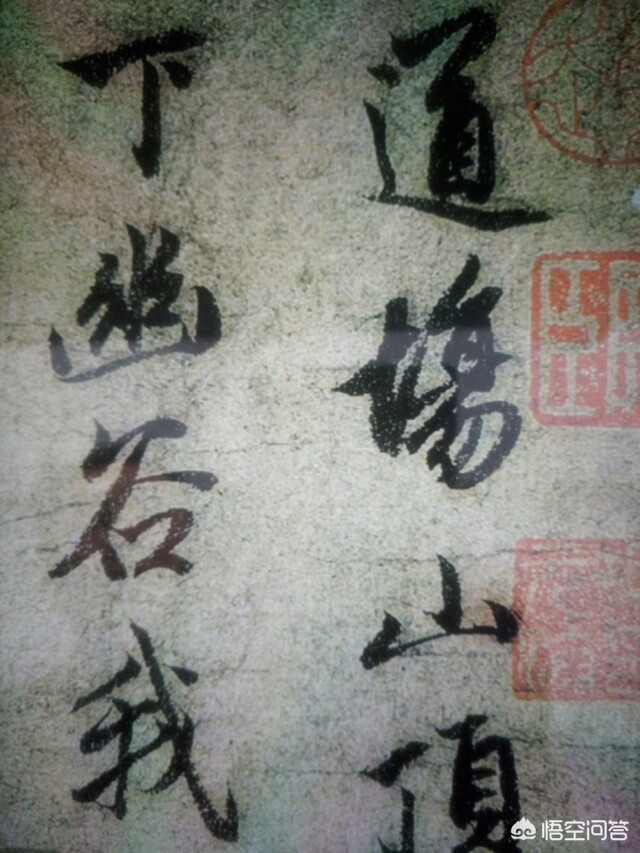 道場山頂
下幽谷我
悟空问答